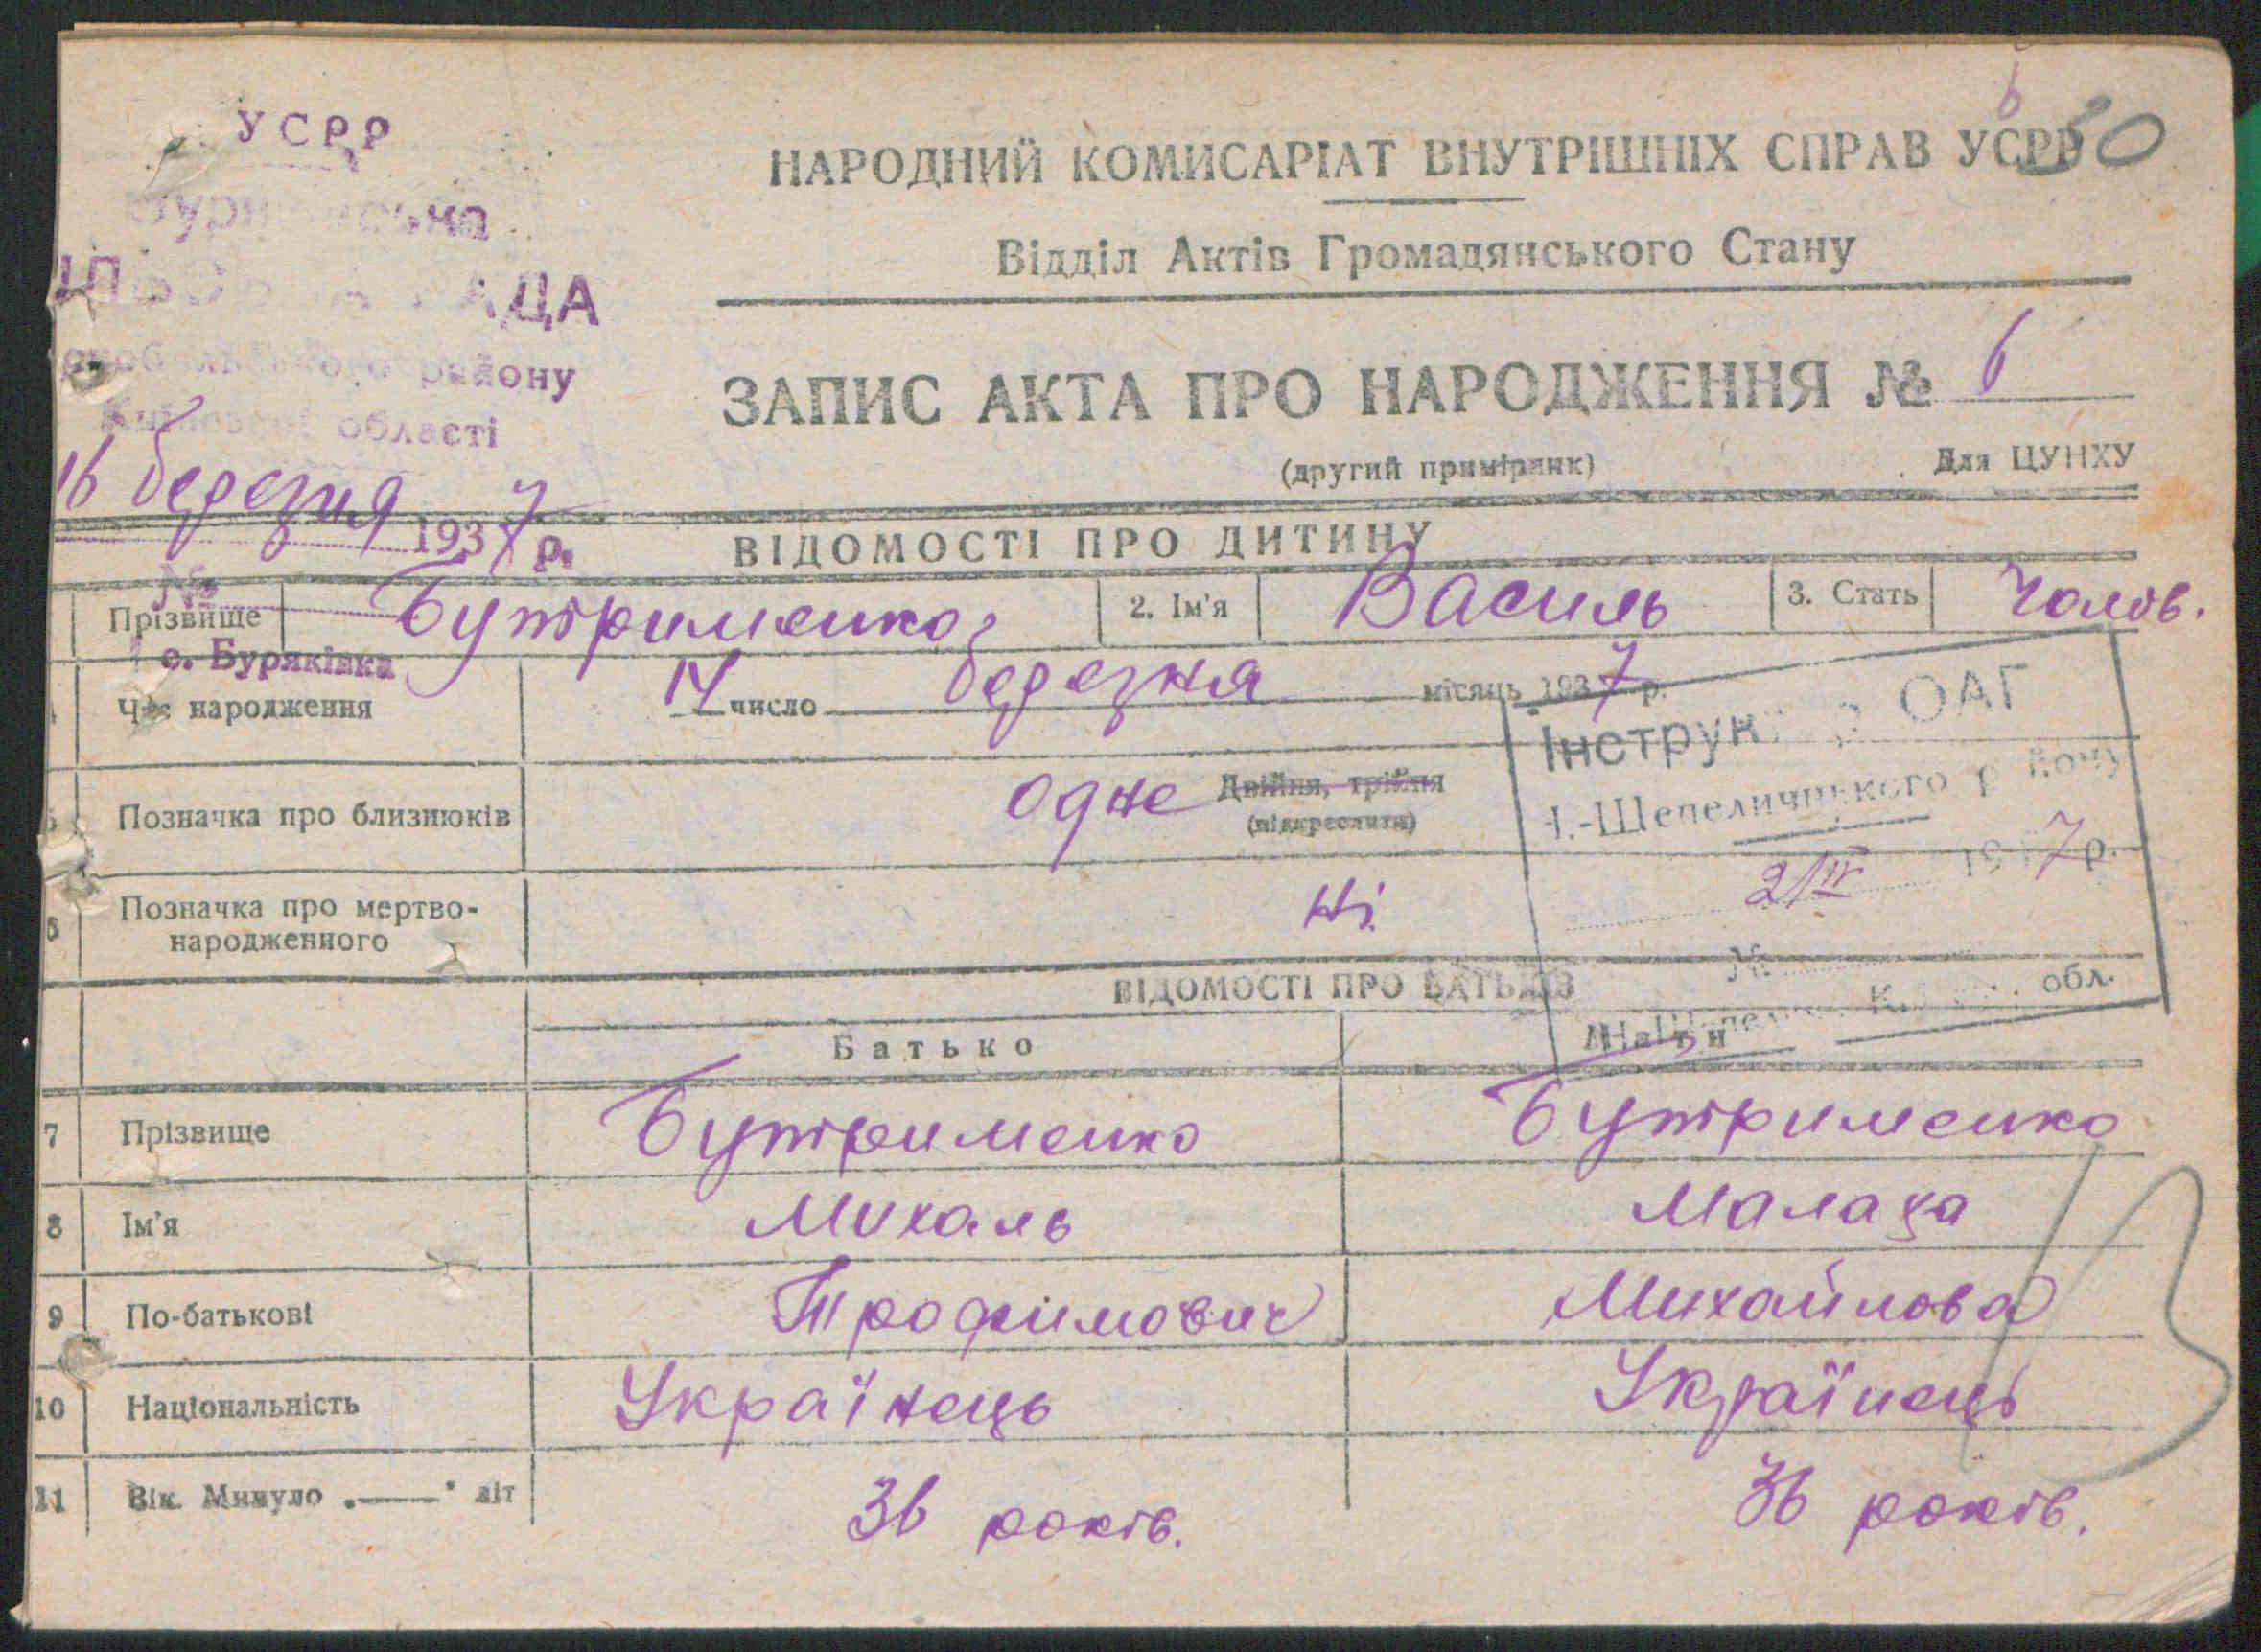 УСРР
РАДА
району
області
16 березня 1937 р.
№
с. Буряківка
6
30
НАРОДНИЙ КОМИСАРІАТ ВНУТРІШНІХ СПРАВ УСРР
Відділ Актів Громадянського Стану
ЗАПИС АКТА ПРО НАРОДЖЕННЯ № 6
(другий примірник) Для ЦУНХУ
ВІДОМОСТІ ПРО ДИТИНУ
Прізвище Бутрименко 2. Ім'я Василь 3. Стать Чолов.
Час народження 14 число березня місяць 1937 р.
Інструктор ОАГ
Н.-Шепелицького району
2/IV 1937 р.
№
обл.
5 Позначка про близнюків одне Двійня, трійня
(підкреслити)
6 Позначка про мертво-
народженного Ні.
ВІДОМОСТІ ПРО БАТЬКІВ
Батько Мати
7 Прізвище Бутрименко Бутрименко
8 Ім'я Михаль
9 По-батькові Трофимович Михайлова
10 Національність Українець Українець
11 Вік. Минуло „——" літ 36 років. 36 років.